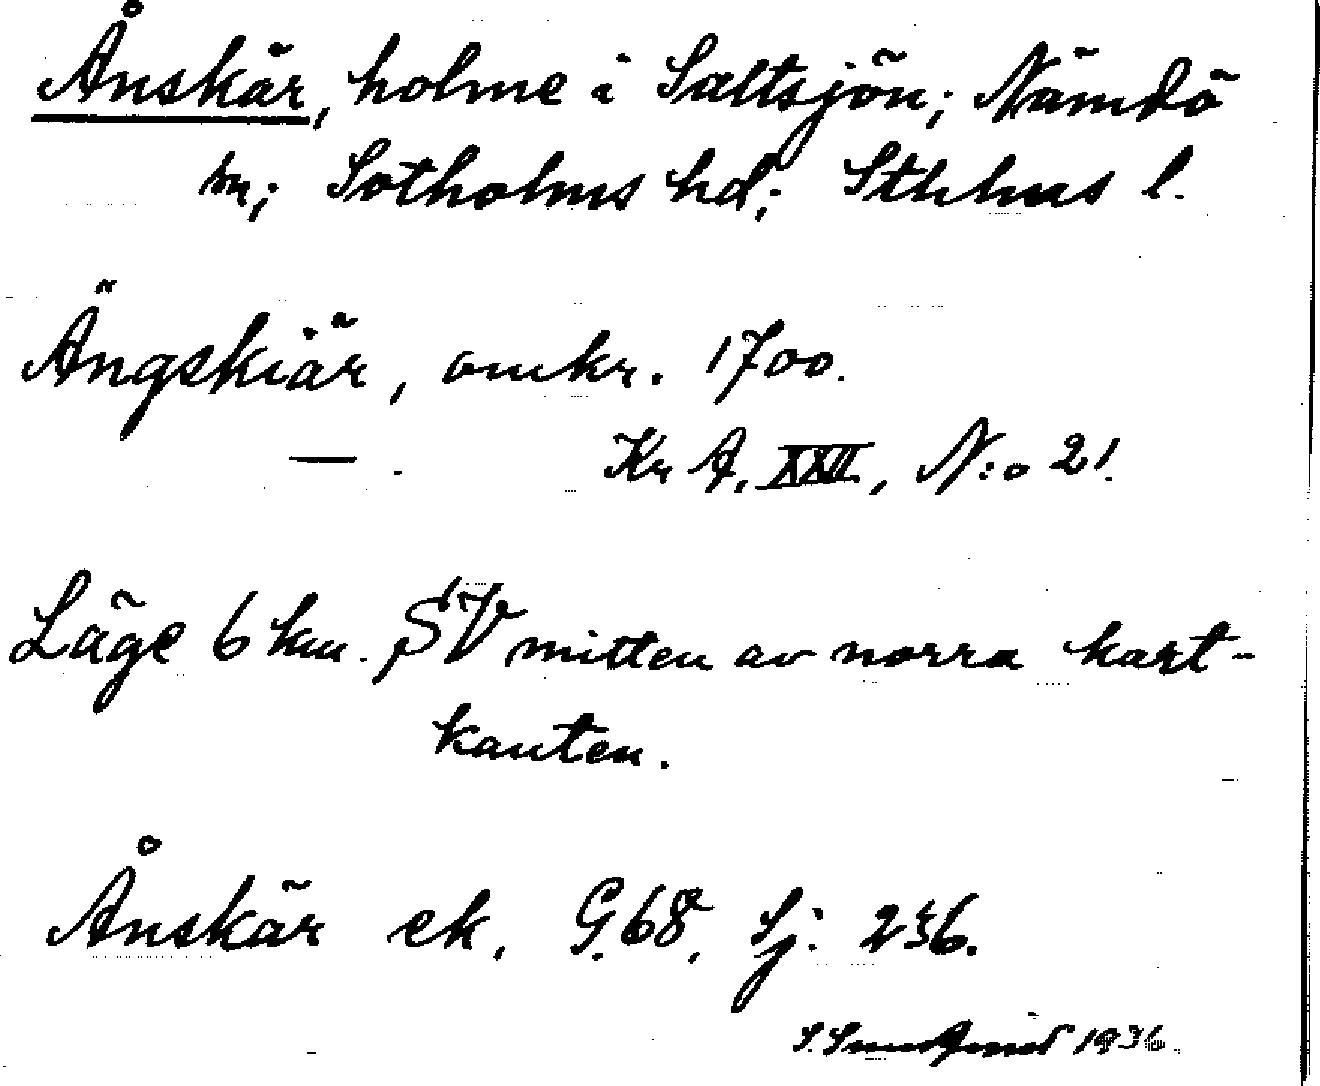 Ånskär, holme i Saltsjön; Nämdö
sn; Sotholms hd; Sthlms l.
Ängskiär, omkr. 1700.
— . Kr A, XXII, N:o 21.
Läge 6 km. SV mitten av norra kart-
kanten.
Ånskär ek. G. 68. Sj: 236.
1936.